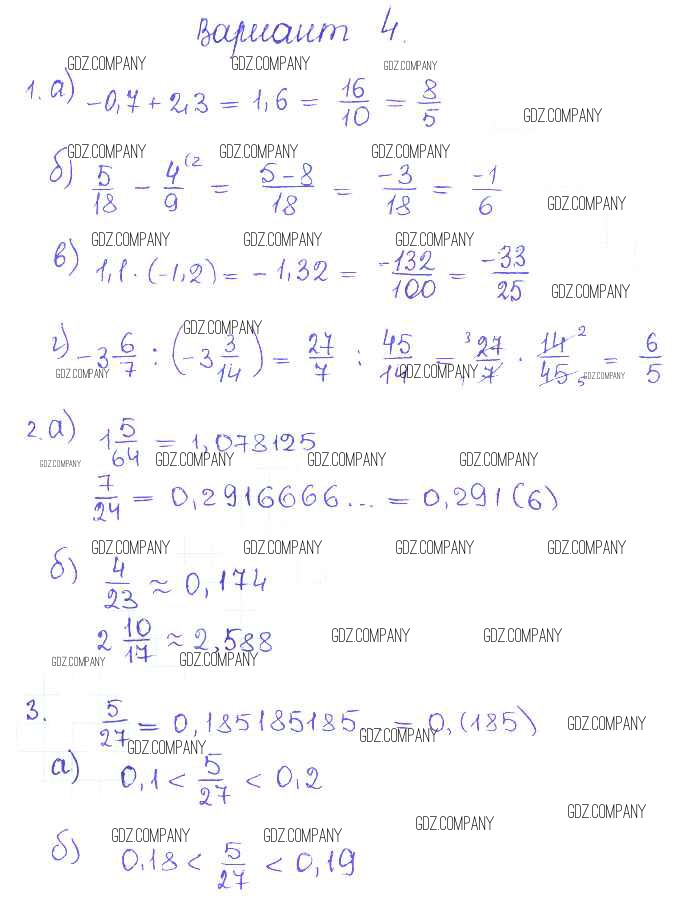 Вариант 4.
GDZ.COMPANY GDZ.COMPANY GDZ.COMPANY
1. а) -0,7 + 2,3 = 1,6 = 16/10 = 8/5
GDZ.COMPANY
GDZ.COMPANY GDZ.COMPANY GDZ.COMPANY
б) 5/18 - 4/9 (2 = 5-8/18 = -3/18 = -1/6
GDZ.COMPANY
GDZ.COMPANY GDZ.COMPANY GDZ.COMPANY
в) 1,1 · (-1,2) = -1,32 = -132/100 = -33/25
GDZ.COMPANY
GDZ.COMPANY
г) -3 6/7 : (-3 3/14) = 27/7 : 45/14 = 3 27/7 · 14/45 2 5 = 6/5
GDZ.COMPANY GDZ.COMPANY GDZ.COMPANY
2. а) 1 5/64 = 1,078125
GDZ.COMPANY GDZ.COMPANY GDZ.COMPANY GDZ.COMPANY
7/24 = 0,2916666... = 0,291(6)
GDZ.COMPANY GDZ.COMPANY GDZ.COMPANY GDZ.COMPANY
б) 4/23 ≈ 0,174
2 10/17 ≈ 2,588
GDZ.COMPANY GDZ.COMPANY
GDZ.COMPANY GDZ.COMPANY
3. 5/27 = 0,185185185... = 0,(185)
GDZ.COMPANY GDZ.COMPANY
GDZ.COMPANY
а) 0,1 < 5/27 < 0,2
GDZ.COMPANY GDZ.COMPANY
GDZ.COMPANY GDZ.COMPANY
б) 0,18 < 5/27 < 0,19